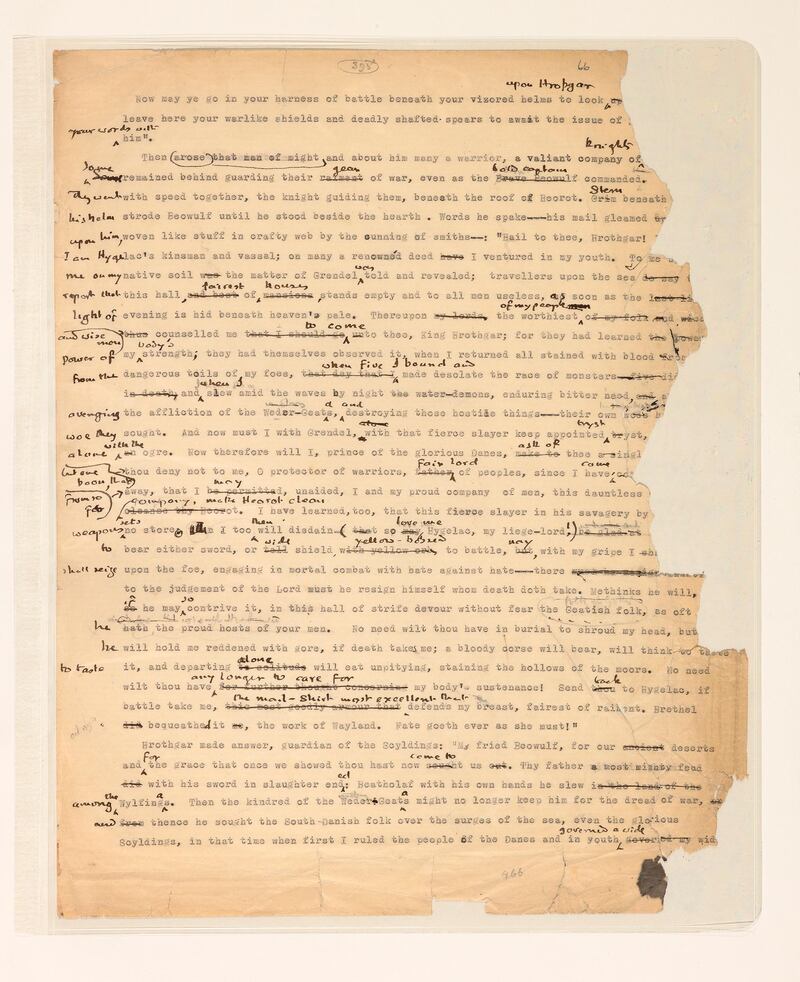 395
66
upon Hroþgar
Now may ye go in your harness of battle beneath your vizored helms to look
leave here your warlike shields and deadly shafted spears to await the issue of
your words with
him".
knights
Then arose that man of might, and about him many a warrior, a valiant company of
Some gear bold captain
remained behind guarding their raiment of war, even as the Brave Beowulf commanded.
They went Stern
with speed together, the knight guiding them, beneath the roof of Heorot. Grim beneath
his helm strode Beowulf until he stood beside the hearth. Words he spake---his mail gleamed
upon him, woven like stuff in crafty web by the cunning of smiths--: "Hail to thee, Hrothgar!
I am Hygelac's kinsman and vassal; on many a renowned deed have I ventured in my youth. To me
was
me on my native soil was the matter of Grendel told and revealed; travellers upon the sea do say
fairest houses
report that this hall and best of mansions stands empty and to all men useless, as soon as the
of my people
light of evening is hid beneath heaven's pale. Thereupon my lords, the worthiest of my folk and
and wise men to come
thus counselled me that I should go unto thee, King Hrothgar; for they had learned the
body's
power of my strength; they had themselves observed it, when I returned all stained with blood
when five I bound and
from the dangerous toils of my foes, that day that I made desolate the race of monsters
when I
in death, and slew amid the waves by night the water-demons, enduring bitter need, and
avenging the affliction of the Weder-Geats, destroying those hostile things---their own
alone tryst
woe they sought. And now must I with Grendel, with that fierce slayer keep appointed tryst,
with the ask of
alone an ogre. Now therefore will I, prince of the glorious Danes, make to thee a singl
fair lord came
thou deny not to me, O protector of warriors, father of peoples, since I have
boon that may
away, that I be permitted, unaided, I and my proud company of men, this dauntless
company, make Heorot clean
cleanse thy Heorot. I have learned, too, that this fierce slayer in his savagery by
sets then love me
weapons no store. I too will disdain (that so may Hygelac, my liege-lord,!)
wide yellow-bossed nay
to bear either sword, or tall shield with yellow orb, to battle, but, with my gripe I
shall seize upon the foe, engaging in mortal combat with hate against hate---there
to the judgement of the Lord must he resign himself whom death doth take. Methinks he will,
if so
he may contrive it, in this hall of strife devour without fear the Geatish folk, as oft
he hath the proud hosts of your men. No need wilt thou have in burial to shroud my head, but
he will hold me reddened with gore, if death takes me; a bloody corse will bear, will think
alone
to taste it, and departing in solitude will eat unpitying, staining the hollows of the moors. No need
any longer to care for back
wilt thou have for further thought concerning my body's sustenance! Send thou to Hygelac, if
the mail-shirt most excellent that
battle take me, this most goodly armour that defends my breast, fairest of raiment. Hrethel
did bequeathed it me, the work of Wayland. Fate goeth ever as she must!"
Hrothgar made answer, guardian of the Scyldings: "My fried Beowulf, for our ancient deserts
for come to
and the grace that once we showed thou hast now sought us out. Thy father a most mighty feud
ed
did with his sword in slaughter end; Heatholaf with his own hands he slew in the land of the
among the Wylfingas. Then the kindred of the Weder-Geats might no longer keep him for the dread of war,
and from thence he sought the South-Danish folk over the surges of the sea, even the glorious
governed a wide
Scyldings, in that time when first I ruled the people of the Danes and in youth governed my wid